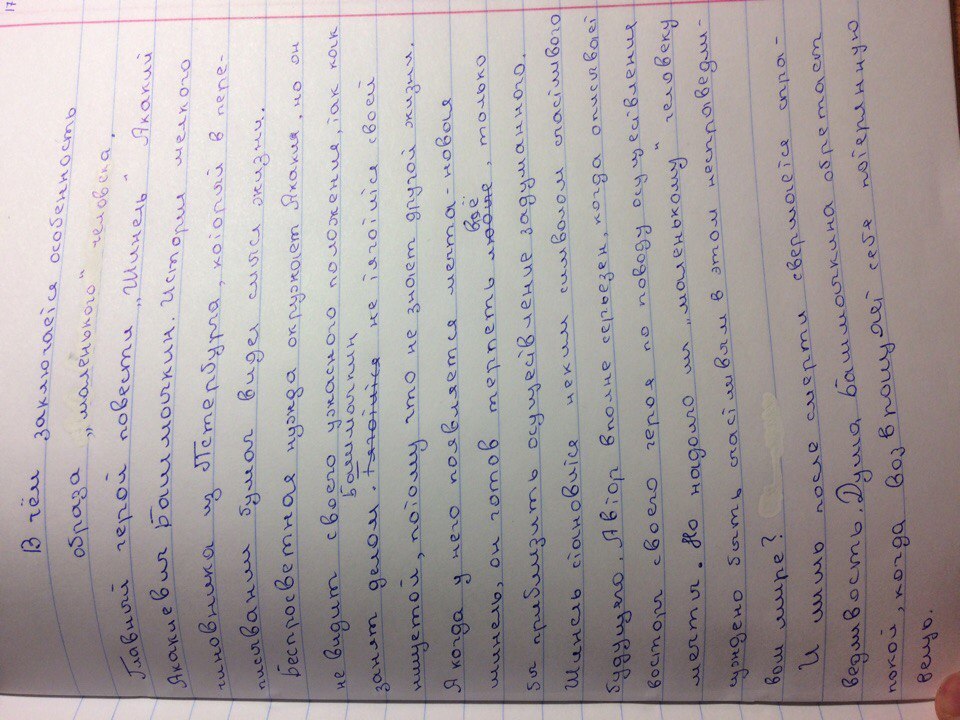 17
В чём заключается особенность
образа „маленького" человека.
Главный герой повести „Шинель" Акакий
Акакиевич Башмачкин. История мелкого
чиновника из Петербурга, который в пере-
писывании бумаг видел смысл жизни.
Беспросветная нужда окружает Акакия, но он
не видит своего ужасного положения, так как
занят делом. Башмачкин не тяготится своей
нищетой, потому что не знает другой жизни.
А когда у него появляется мечта - новая
шинель, он готов терпеть всё, только
бы приблизить осуществление задуманного.
Шинель становится неким символом счастливого
будущего. Автор вполне серьезен, когда описывает
восторг своего героя по поводу осуществления
мечты. Но надолго ли „маленькому" человеку
суждено быть счастливым в этом несправедли-
вом мире?
И лишь после смерти свершается спра-
ведливость. Душа Башмачкина обретает
покой, когда возвращает себе потерянную
вещь.